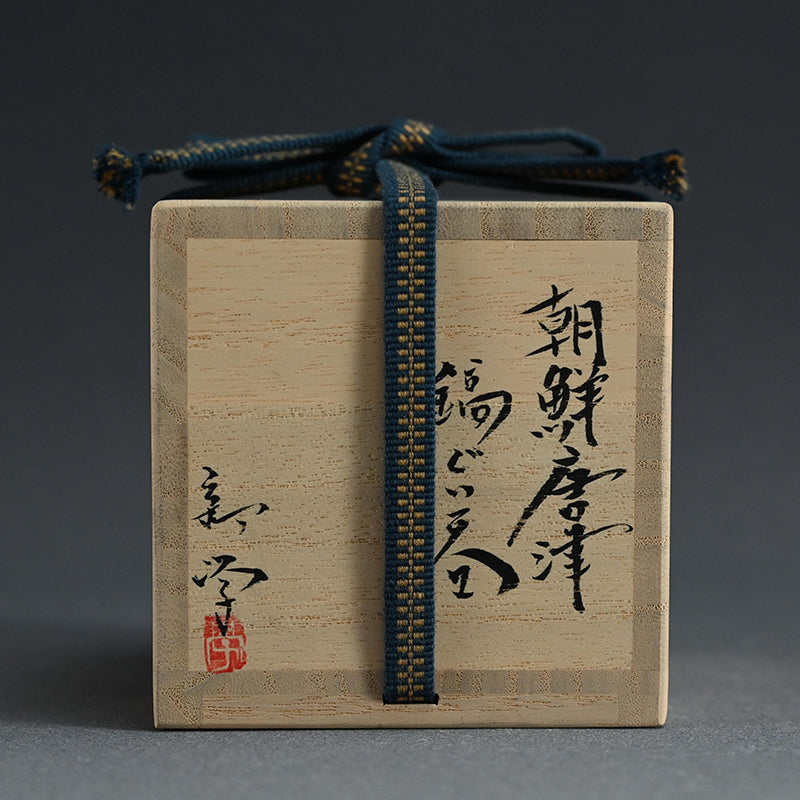 朝鮮唐津
鎬ぐい呑
新学